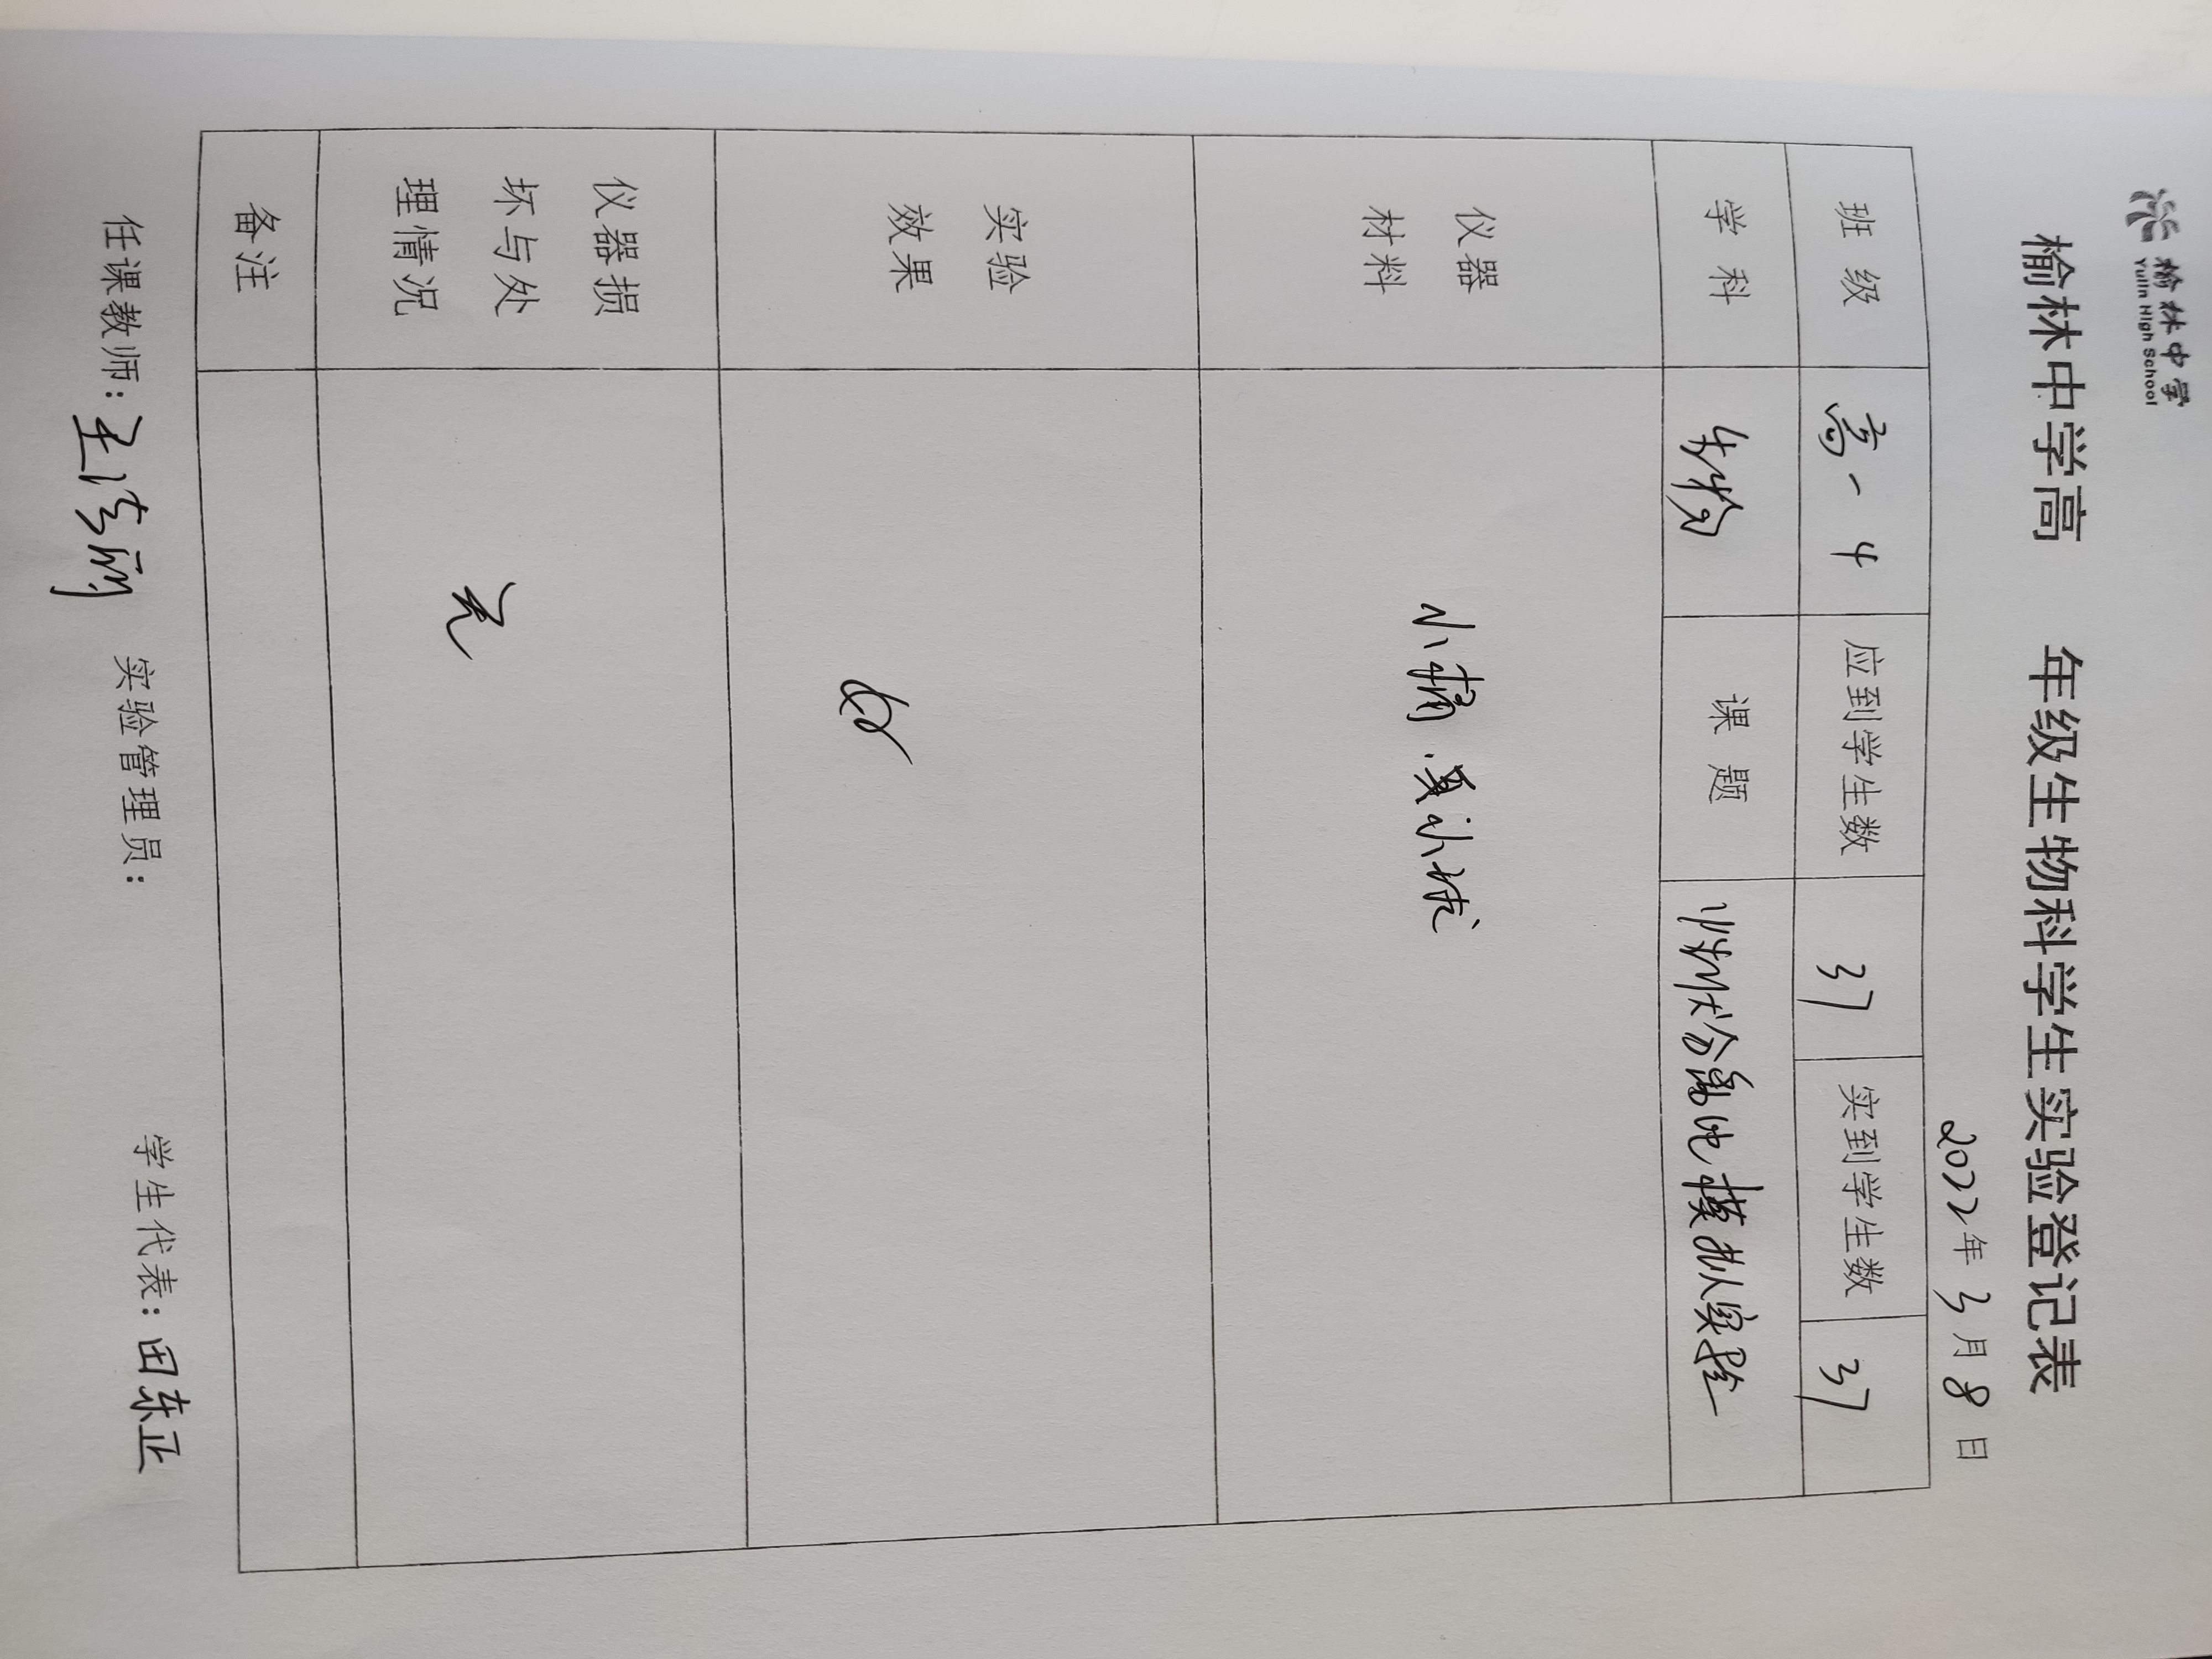 榆林中学
Yulin High School
榆林中学高 年级生物科学生实验登记表
2022年 3月 8日
班 级 高一 4 应到学生数 37 实到学生数 37
学 科 生物 课 题 性状分离比模拟实验
仪器
材料
小桶、小球
实验
效果
好
仪器损
坏与处
理情况
无
备注
任课教师: 王 实验管理员: 学生代表: 田东正